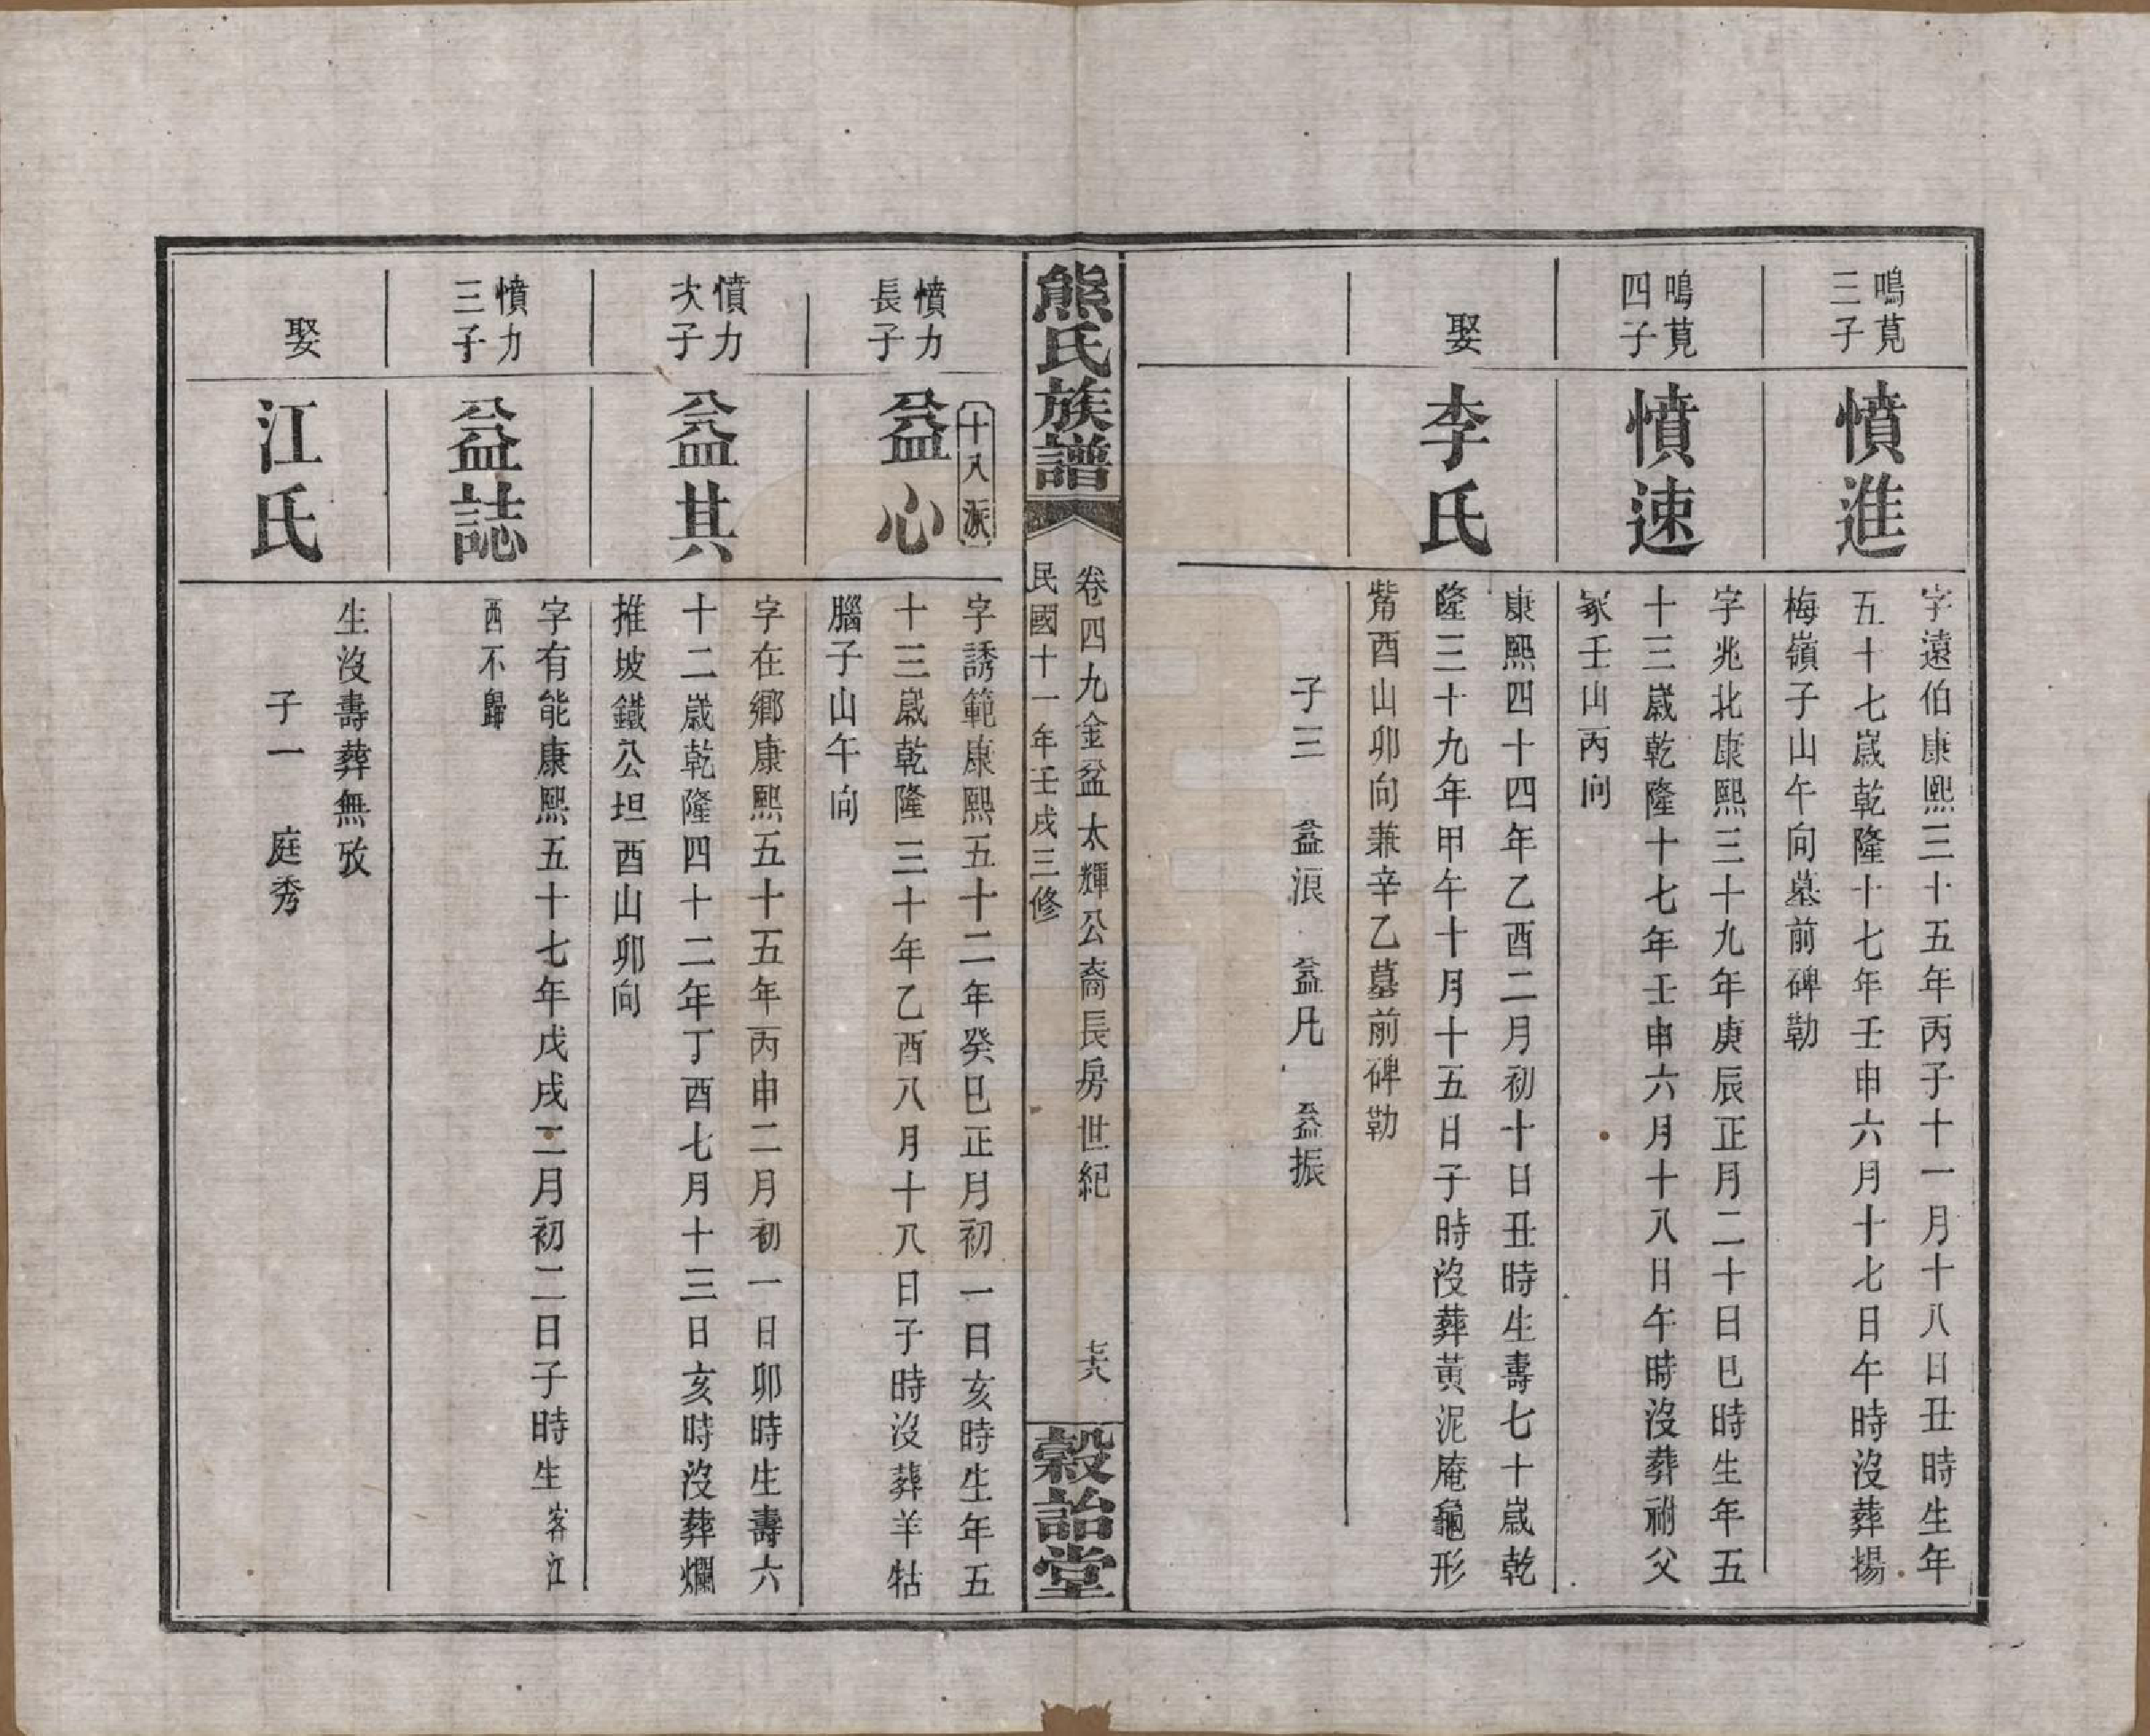 鳴莧
三子
憤進
字遠伯康熙三十五年丙子十一月十八日丑時生年
五十七歲乾隆十七年壬申六月十七日午時沒葬楊
梅嶺子山午向墓前碑勒
鳴莧
四子
憤速
字兆北康熙三十九年庚辰正月二十日巳時生年五
十三歲乾隆十七年壬申六月十八日午時沒葬祔父
冢壬山丙向
娶
李氏
康熙四十四年乙酉二月初十日丑時生壽七十歲乾
隆三十九年甲午十月十五日子時沒葬黃泥庵龜形
觜酉山卯向兼辛乙墓前碑勒
子三 益浪 益凡 益振
熊氏族譜
卷四九金盆太輝公裔長房世紀
民國十一年壬戌三修
七六
穀詒堂
十八派
憤力
長子
益心
字誘範康熙五十二年癸巳正月初一日亥時生年五
十三歲乾隆三十年乙酉八月十八日子時沒葬羊牯
腦子山午向
憤力
次子
益其
字在鄉康熙五十五年丙申二月初一日卯時生壽六
十二歲乾隆四十二年丁酉七月十三日亥時沒葬爛
推坡鐵公坦酉山卯向
憤力
三子
益誌
字有能康熙五十七年戊戌二月初二日子時生客江
西不歸
娶
江氏
生沒壽葬無攷
子一 庭秀